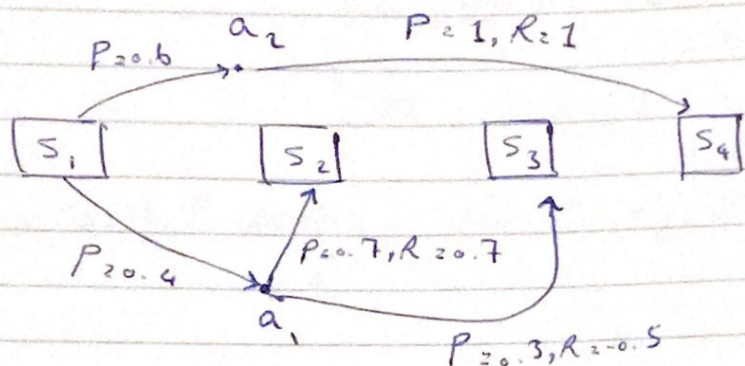 a₂
P=1, R=1
P=0.6
S₁
S₂
S₃
S₄
P=0.4
P=0.7, R=0.7
a₁
P=0.3, R=-0.5